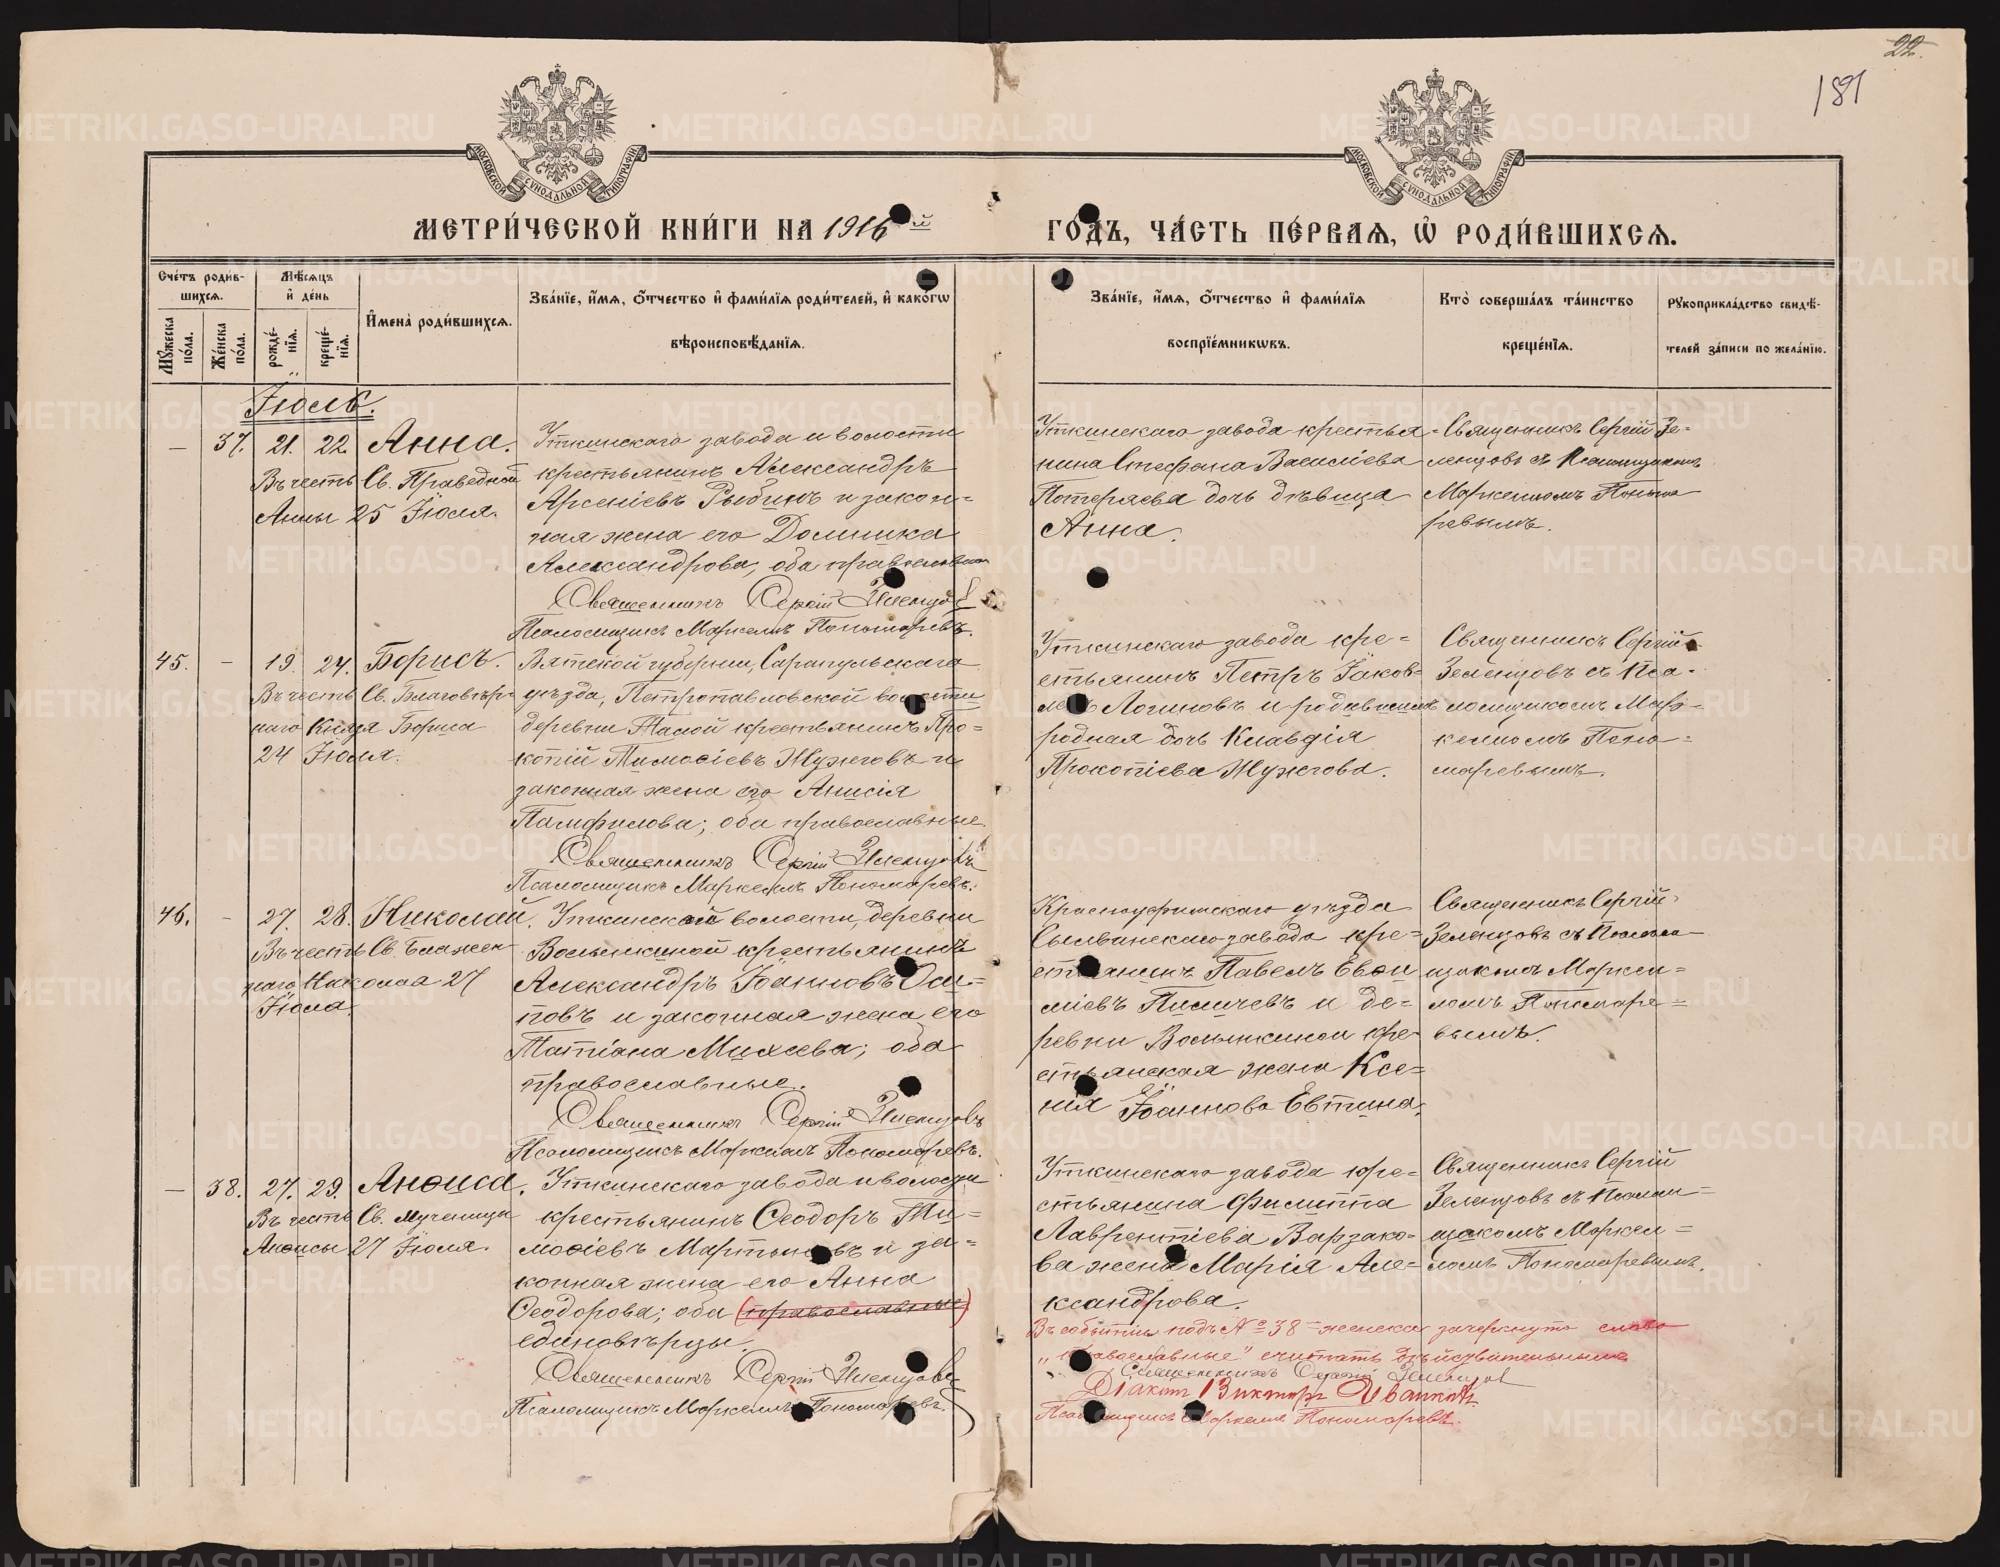 22.
181
МОСКОВСКОЙ СѴНОДАЛЬНОЙ ТИПОГРАФІИ
МОСКОВСКОЙ СѴНОДАЛЬНОЙ ТИПОГРАФІИ
МЕТРИ́ЧЕСКОЙ КНИ́ГИ НА 1916й
ГО́ДЪ, ЧА́СТЬ ПЕ́РВАЯ, Ѡ҆ РОДИ́ВШИХСЯ.
Сче́тъ роди́в-
шихся.
Мѣ́сяцъ
и҆ де́нь
Мꙋ́жеска
по́ла.
Же́нска
по́ла.
рожде́-
нїя.
креще́-
нїя.
И҆мена̀ роди́вшихся.
Зва́нїе, и҆́мя, ѻ҆́тчество и҆ фами́лїя роди́телей, и҆ како́гѡ
вѣроисповѣ́данїя.
Зва́нїе, и҆́мя, ѻ҆́тчество и҆ фами́лїя
воспрїе́мникѡвъ.
Кто̀ соверша́лъ та́инство
креще́нїя.
Рꙋкоприкла́дство свидѣ́-
телей за́писи по жела́нїю.
Іюль.
— 37. 21. 22. Анна.
Въ честь Св. Праведной
Анны 25 Іюля.
Уткинскаго завода и волости
крестьянинъ Александръ
Арсеніевъ Рыбинъ и закон=
ная жена его Домника
Александрова, оба православные
Священникъ Сергій Зеленцовъ
Псаломщикъ Маркеллъ Пономаревъ.
Уткинскаго завода крестья=
нина Стефана Василіева
Потеряева дочь дѣвица
Анна.
Священникъ Сергій Зе=
ленцовъ съ Псаломщикомъ
Маркелломъ Понома
ревымъ.
45. — 19. 24. Борисъ.
Въ честь Св. Благовѣр=
наго Князя Бориса
24 Іюля.
Вятской губерніи, Сарапульскаго
уѣзда, Петропавловской волости
деревни крестьянинъ Про=
копій Тимоѳіевъ Жужговъ и
законная жена его Анисія
Памфилова; оба православные
Священникъ Сергій Зеленцовъ
Псаломщикъ Маркеллъ Пономаревъ.
Уткинскаго завода кре=
стьянинъ Петръ Іаков=
левъ Логиновъ и родившихъ
родная дочь Клавдія
Прокопіева Жужгова.
Священникъ Сергій
Зеленцовъ съ Пса=
ломщикомъ Мар=
келломъ Поно=
маревымъ.
46. — 27. 28. Николай.
Въ честь Св. Блажен
наго Николая 27
Іюля.
Уткинской волости, деревни
Волыпкиной крестьянинъ
Александръ Іоанновъ Оси=
повъ и законная жена его
Татіана Михеева; оба
православные.
Священникъ Сергій Зеленцовъ
Псаломщикъ Маркеллъ Пономаревъ.
Красноуфимскаго уѣзда
Сылвинскаго завода кре=
стьянинъ Павелъ Евѳи
міевъ и де=
ревни Волыпкиной кре=
стьянская жена Ксе=
нія Іоаннова Евтина.
Священникъ Сергій
Зеленцовъ съ Псалом
щикомъ Маркел=
ломъ Пономаре=
вымъ.
— 38. 27. 29. Анѳиса.
Въ честь Св. Мученицы
Анѳисы 27 Іюля.
Уткинскаго завода и волости
крестьянинъ Ѳеодоръ Ти=
моѳіевъ Мартыновъ и за=
конная жена его Анна
Ѳеодорова; оба (православные)
единовѣрцы.
Священникъ Сергій Зеленцовъ
Псаломщикъ Маркеллъ Пономаревъ.
Уткинскаго завода кре=
стьянина Филиппа
Лаврентіева Варзако=
ва жена Марія Але=
ксандрова.
Священникъ Сергій
Зеленцовъ съ Псалом=
щикомъ Маркел=
ломъ Пономаревымъ.
Въ событіи подъ № 38 женска зачеркнуто слово
„православные" считать дѣйствительнымъ
Священникъ Сергій Зеленцов
Діаконъ Викторъ Иванковъ
Псаломщикъ Маркеллъ Пономаревъ.
METRIKI.GASO-URAL.RU